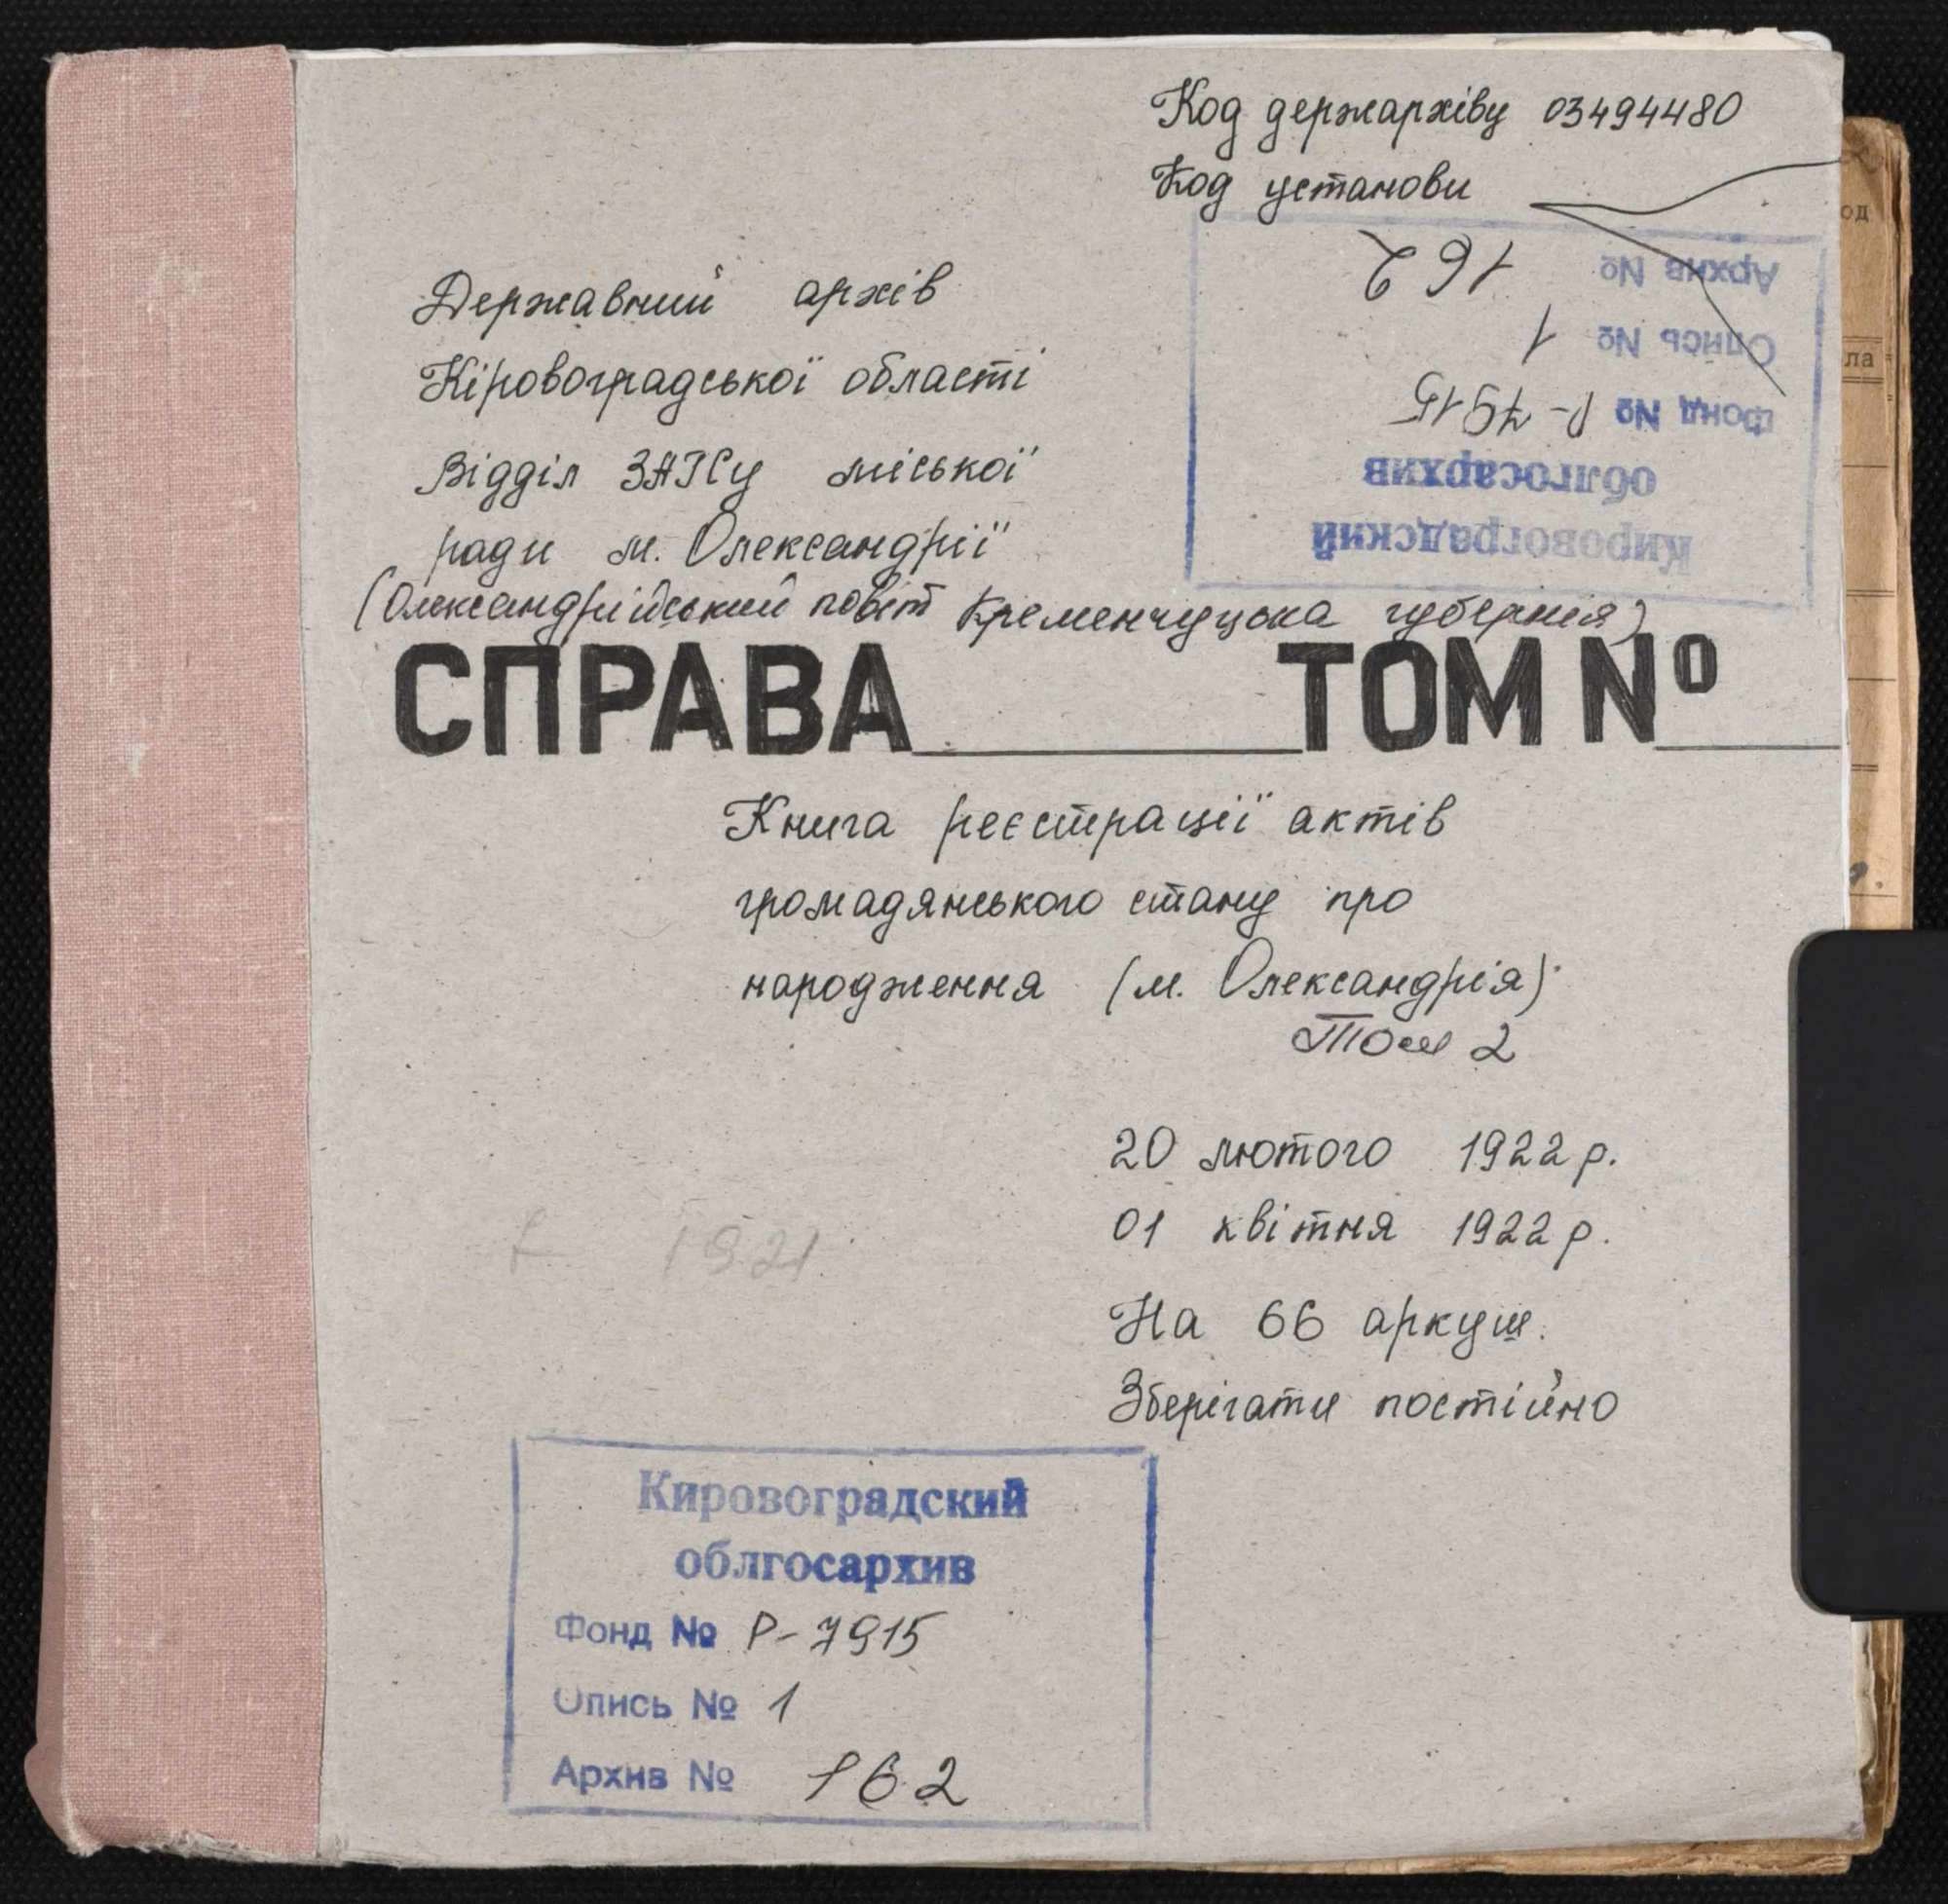 Код держархіву 03494480
Код установи
Архив № 162
Опись № 1
Фонд № Р-7915
облгосархив
Кировоградский
Державний архів
Кіровоградської області
Відділ ЗАГСу міської
ради м. Олександрії
(Олександрійський повіт Кременчуцька губернія)
СПРАВА ТОМ №
Книга реєстрації актів
громадянського стану про
народження (м. Олександрія)
Том 2
20 лютого 1922 р.
01 квітня 1922 р.
1921
На 66 аркуш.
Зберігати постійно
Кировоградский
облгосархив
Фонд № Р-7915
Опись № 1
Архив № 162
од
ла